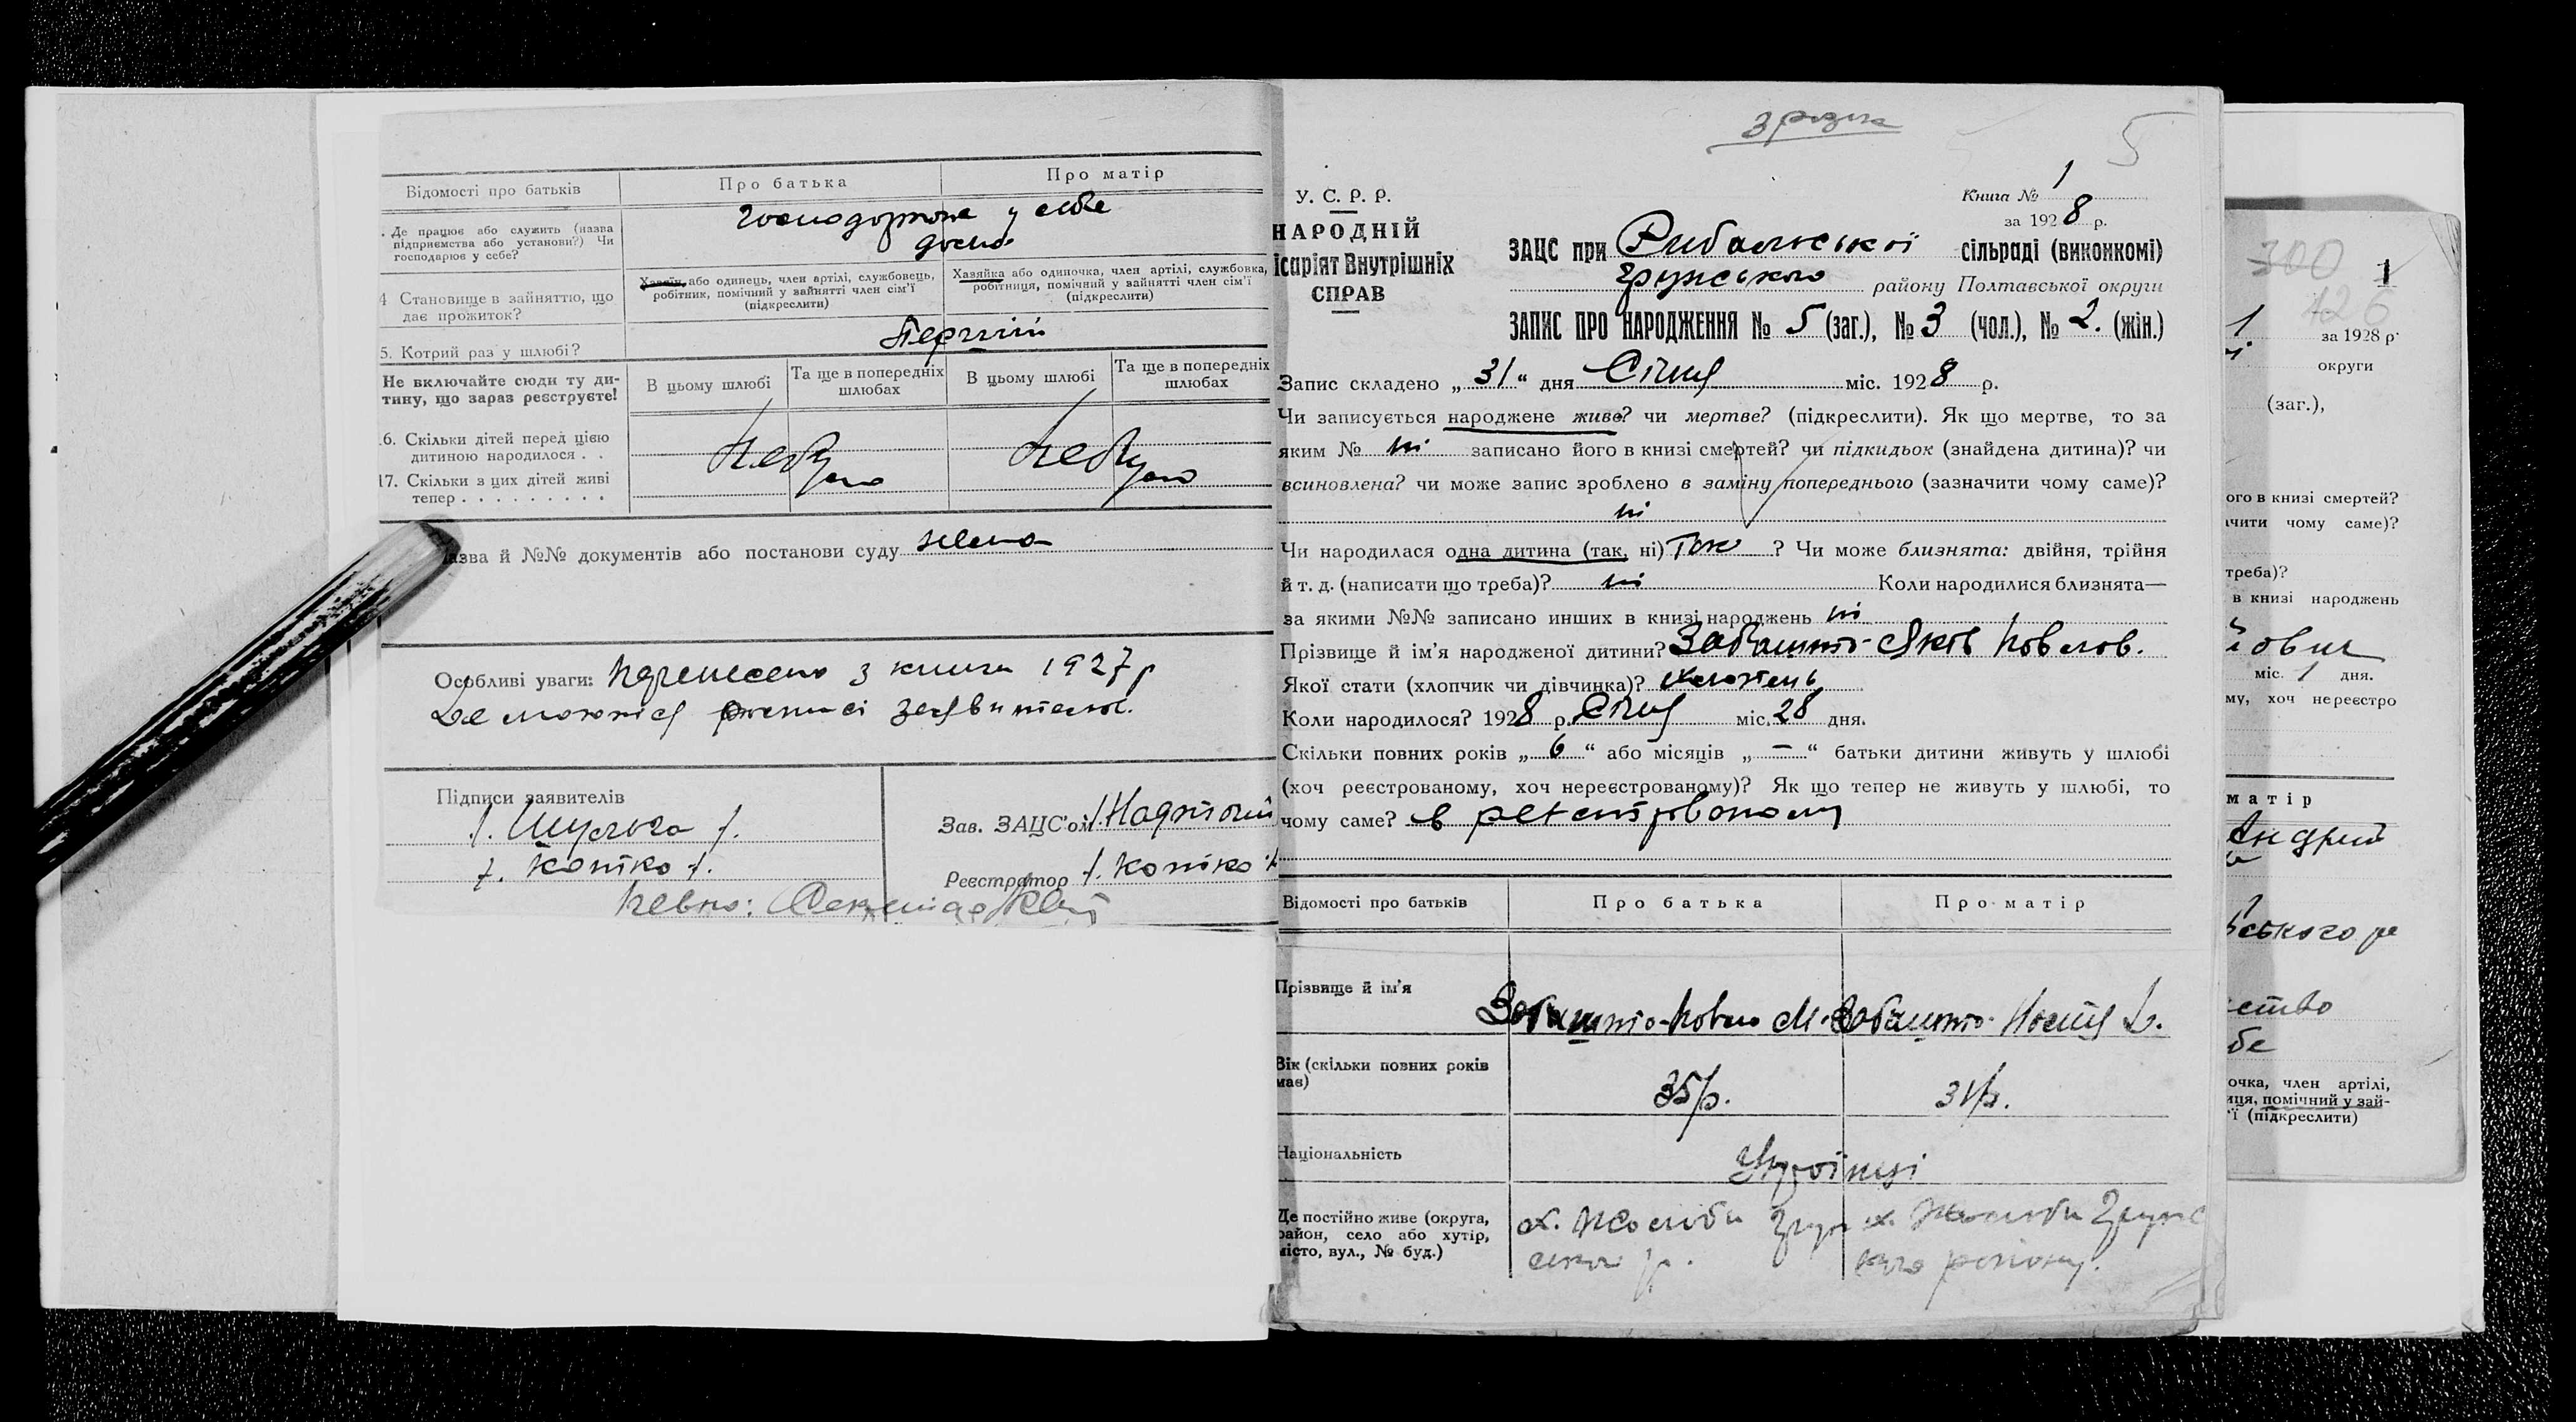 Відомості про батьків
Про батька
Про матір
. Де працює або служить (назва
підприємства або установи?) Чи
господарює у себе?
у себе
дома
4 Становище в зайняттю, що
дає прожиток?
Хазяїн, або одинець, член артілі, службовець,
робітник, помічний у зайнятті член сім'ї
(підкреслити)
Хазяйка або одиночка, член артілі, службовка,
робітниця, помічний у зайнятті член сім'ї
(підкреслити)
5. Котрий раз у шлюбі?
Перший
Не включайте сюди ту ди-
тину, що зараз реєструєте!
В цьому шлюбі
Та ще в попередніх
шлюбах
В цьому шлюбі
Та ще в попередніх
шлюбах
16. Скільки дітей перед цією
дитиною народилося . .
17. Скільки з цих дітей живі
тепер . . . . . . . . .
Небуло
Небуло
азва й №№ документів або постанови суду нема
Особливі уваги: Перенесено з книги 1927 р
Підписи заявителів
Зав. ЗАЦС'ом
/. Шульга /.
/. Котко /.
Реєстратор /. Котко
Певно: Секретар
з різки
5
У. С. Р. Р.
НАРОДНІЙ
ісаріят Внутрішніх
СПРАВ
Книга № 1
за 1928 р.
ЗАЦС при Рибальської сільраді (виконкомі)
Грунського району Полтавської округи
ЗАПИС ПРО НАРОДЖЕННЯ № 5 (заг.), № 3 (чол.), № 2. (жін.)
Запис складено „ 31 “ дня Січня міс. 1928 р.
Чи записується народжене живе? чи мертве? (підкреслити). Як що мертве, то за
яким № ні записано його в книзі смертей? чи підкидьок (знайдена дитина)? чи
всиновлена? чи може запис зроблено в заміну попереднього (зазначити чому саме)?
ні
Чи народилася одна дитина (так, ні) Так ? Чи може близнята: двійня, трійня
й т. д. (написати що треба)? ні Коли народилися близнята—
за якими №№ записано инших в книзі народжень ні
Прізвище й ім'я народженої дитини? Забашто Яків Павлов.
Якої стати (хлопчик чи дівчинка)?
Коли народилося? 1928 р. Січня міс. 28 дня.
Скільки повних років „ 6 “ або місяців „ — “ батьки дитини живуть у шлюбі
(хоч реєстрованому, хоч нереєстрованому)? Як що тепер не живуть у шлюбі, то
чому саме? в реєстрованому
Відомості про батьків
Про батька
Про матір
Прізвище й ім'я
Забашто Павло М.
Забашто Настя
Вік (скільки повних років
має)
35/р.
31/р.
Національність
Українці
Де постійно живе (округа,
район, село або хутір,
місто, вул., № буд.)
х. Жолоби Грун
ського р.
х. Жолоби Грунс
кого району.
300
126
1
1.
за 1928 р.
округи
(заг.),
ого в книзі смертей?
чити чому саме)?
треба)?
в книзі народжень
йович
міс. 1 дня.
му, хоч нереєстро
матір
Андрій
ського р
ство
бе
очка, член артілі,
иця, помічний у зай-
'ї (підкреслити)